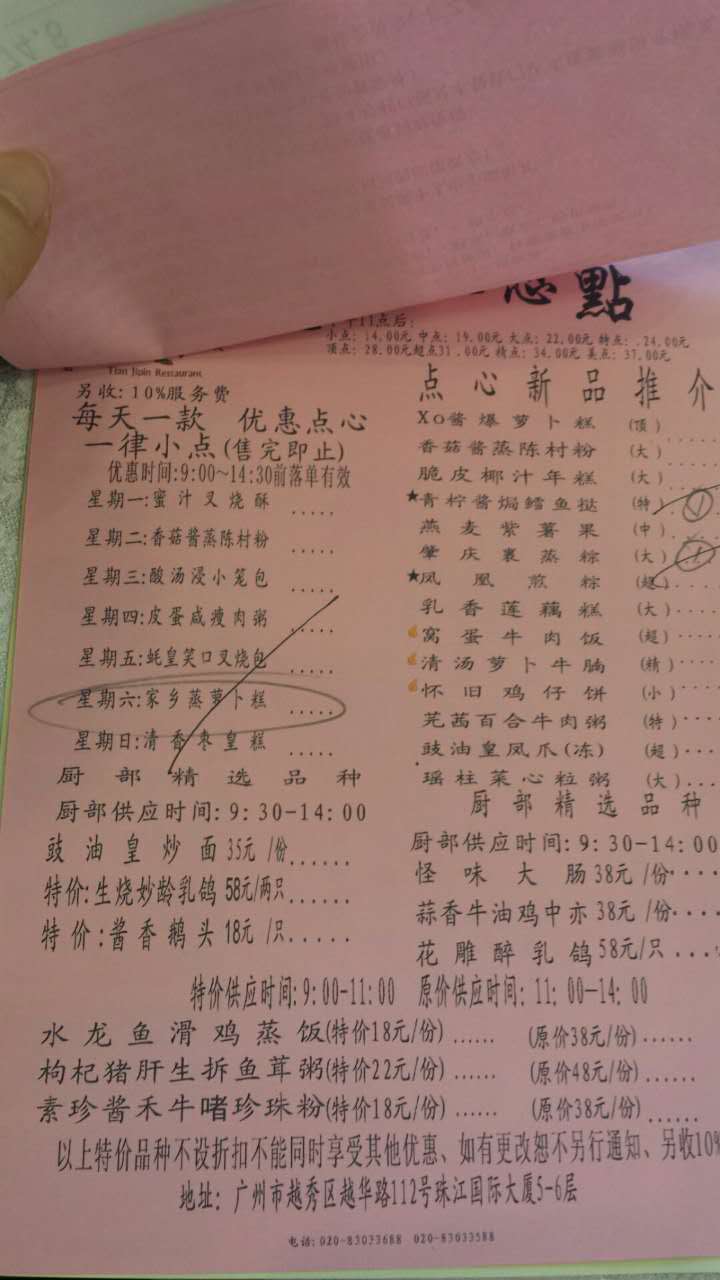 心點
11点后:
小点: 14.00元 中点: 19.00元 大点: 22.00元 特点: .24.00元
顶点: 28.00元超点31.00元 精点: 34.00元 美点: 37.00元
Restaurant
另收: 10%服务费
每天一款 优惠点心
一律小点(售完即止)
优惠时间:9:00~14:30前落单有效
星期一:蜜汁叉烧酥 .....
星期二:香菇酱蒸陈村粉 .....
星期三:酸汤浸小笼包 .....
星期四:皮蛋咸瘦肉粥 .....
星期五:蚝皇笑口叉烧包 .....
星期六:家乡蒸萝卜糕 .....
星期日:清香枣皇糕 .....
厨部精选品种
厨部供应时间:9:30-14:00
豉油皇炒面 35元 /份......
特价:生烧妙龄乳鸽 58元/两只......
特价:酱香鹅头 18元 /只......
点心新品推介
XO酱爆萝卜糕 (顶)
香菇酱蒸陈村粉 (大)
脆皮椰汁年糕 (大)
★青柠酱焗鳕鱼挞 (特) 1
燕麦紫薯果 (中)
肇庆裹蒸粽 (大) 1
★凤凰煎粽 (超)
乳香莲藕糕 (大)
窝蛋牛肉饭 (超)
清汤萝卜牛腩 (精)
怀旧鸡仔饼 (小)
芫茜百合牛肉粥 (特)
豉油皇凤爪(冻) (超)
瑶柱菜心粒粥 (大)
厨部精选品种
厨部供应时间:9:30-14:00
怪味大肠 38元 /份....
蒜香牛油鸡中亦 38元 /份....
花雕醉乳鸽 58元/只....
特价供应时间:9:00-11:00 原价供应时间: 11:00-14:00
水龙鱼滑鸡蒸饭(特价18元/份) ...... (原价38元/份)......
枸杞猪肝生拆鱼茸粥(特价22元/份) ...... (原价48元/份)......
素珍酱禾牛啫珍珠粉(特价18元/份) ...... (原价38元/份)......
以上特价品种不设折扣不能同时享受其他优惠、如有更改恕不另行通知、另收10%
地址: 广州市越秀区越华路112号珠江国际大厦5-6层
电话: 020-83033688 020-83033588